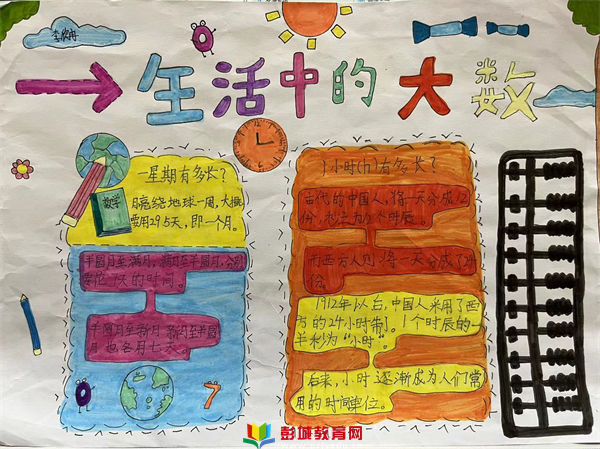 生活中的大数
一星期有多长?
数学
月亮绕地球一周,大概
需用29.5天,即一个月。
半圆月至满月,满月至半圆月,分别
需花7天的时间。
半圆月至新月,新月至半圆
月也各用七天。
1小时(h)有多长?
古代的中国人,将一天分成12
份,称之为12个时辰。
而西方人则将一天分成了24
份。
1912年以后,中国人采用了西
方的24小时制。1个时辰的一
半称为“小时”。
后来,小时逐渐成为人们常
用的时间单位。
0
7
彭城教育网